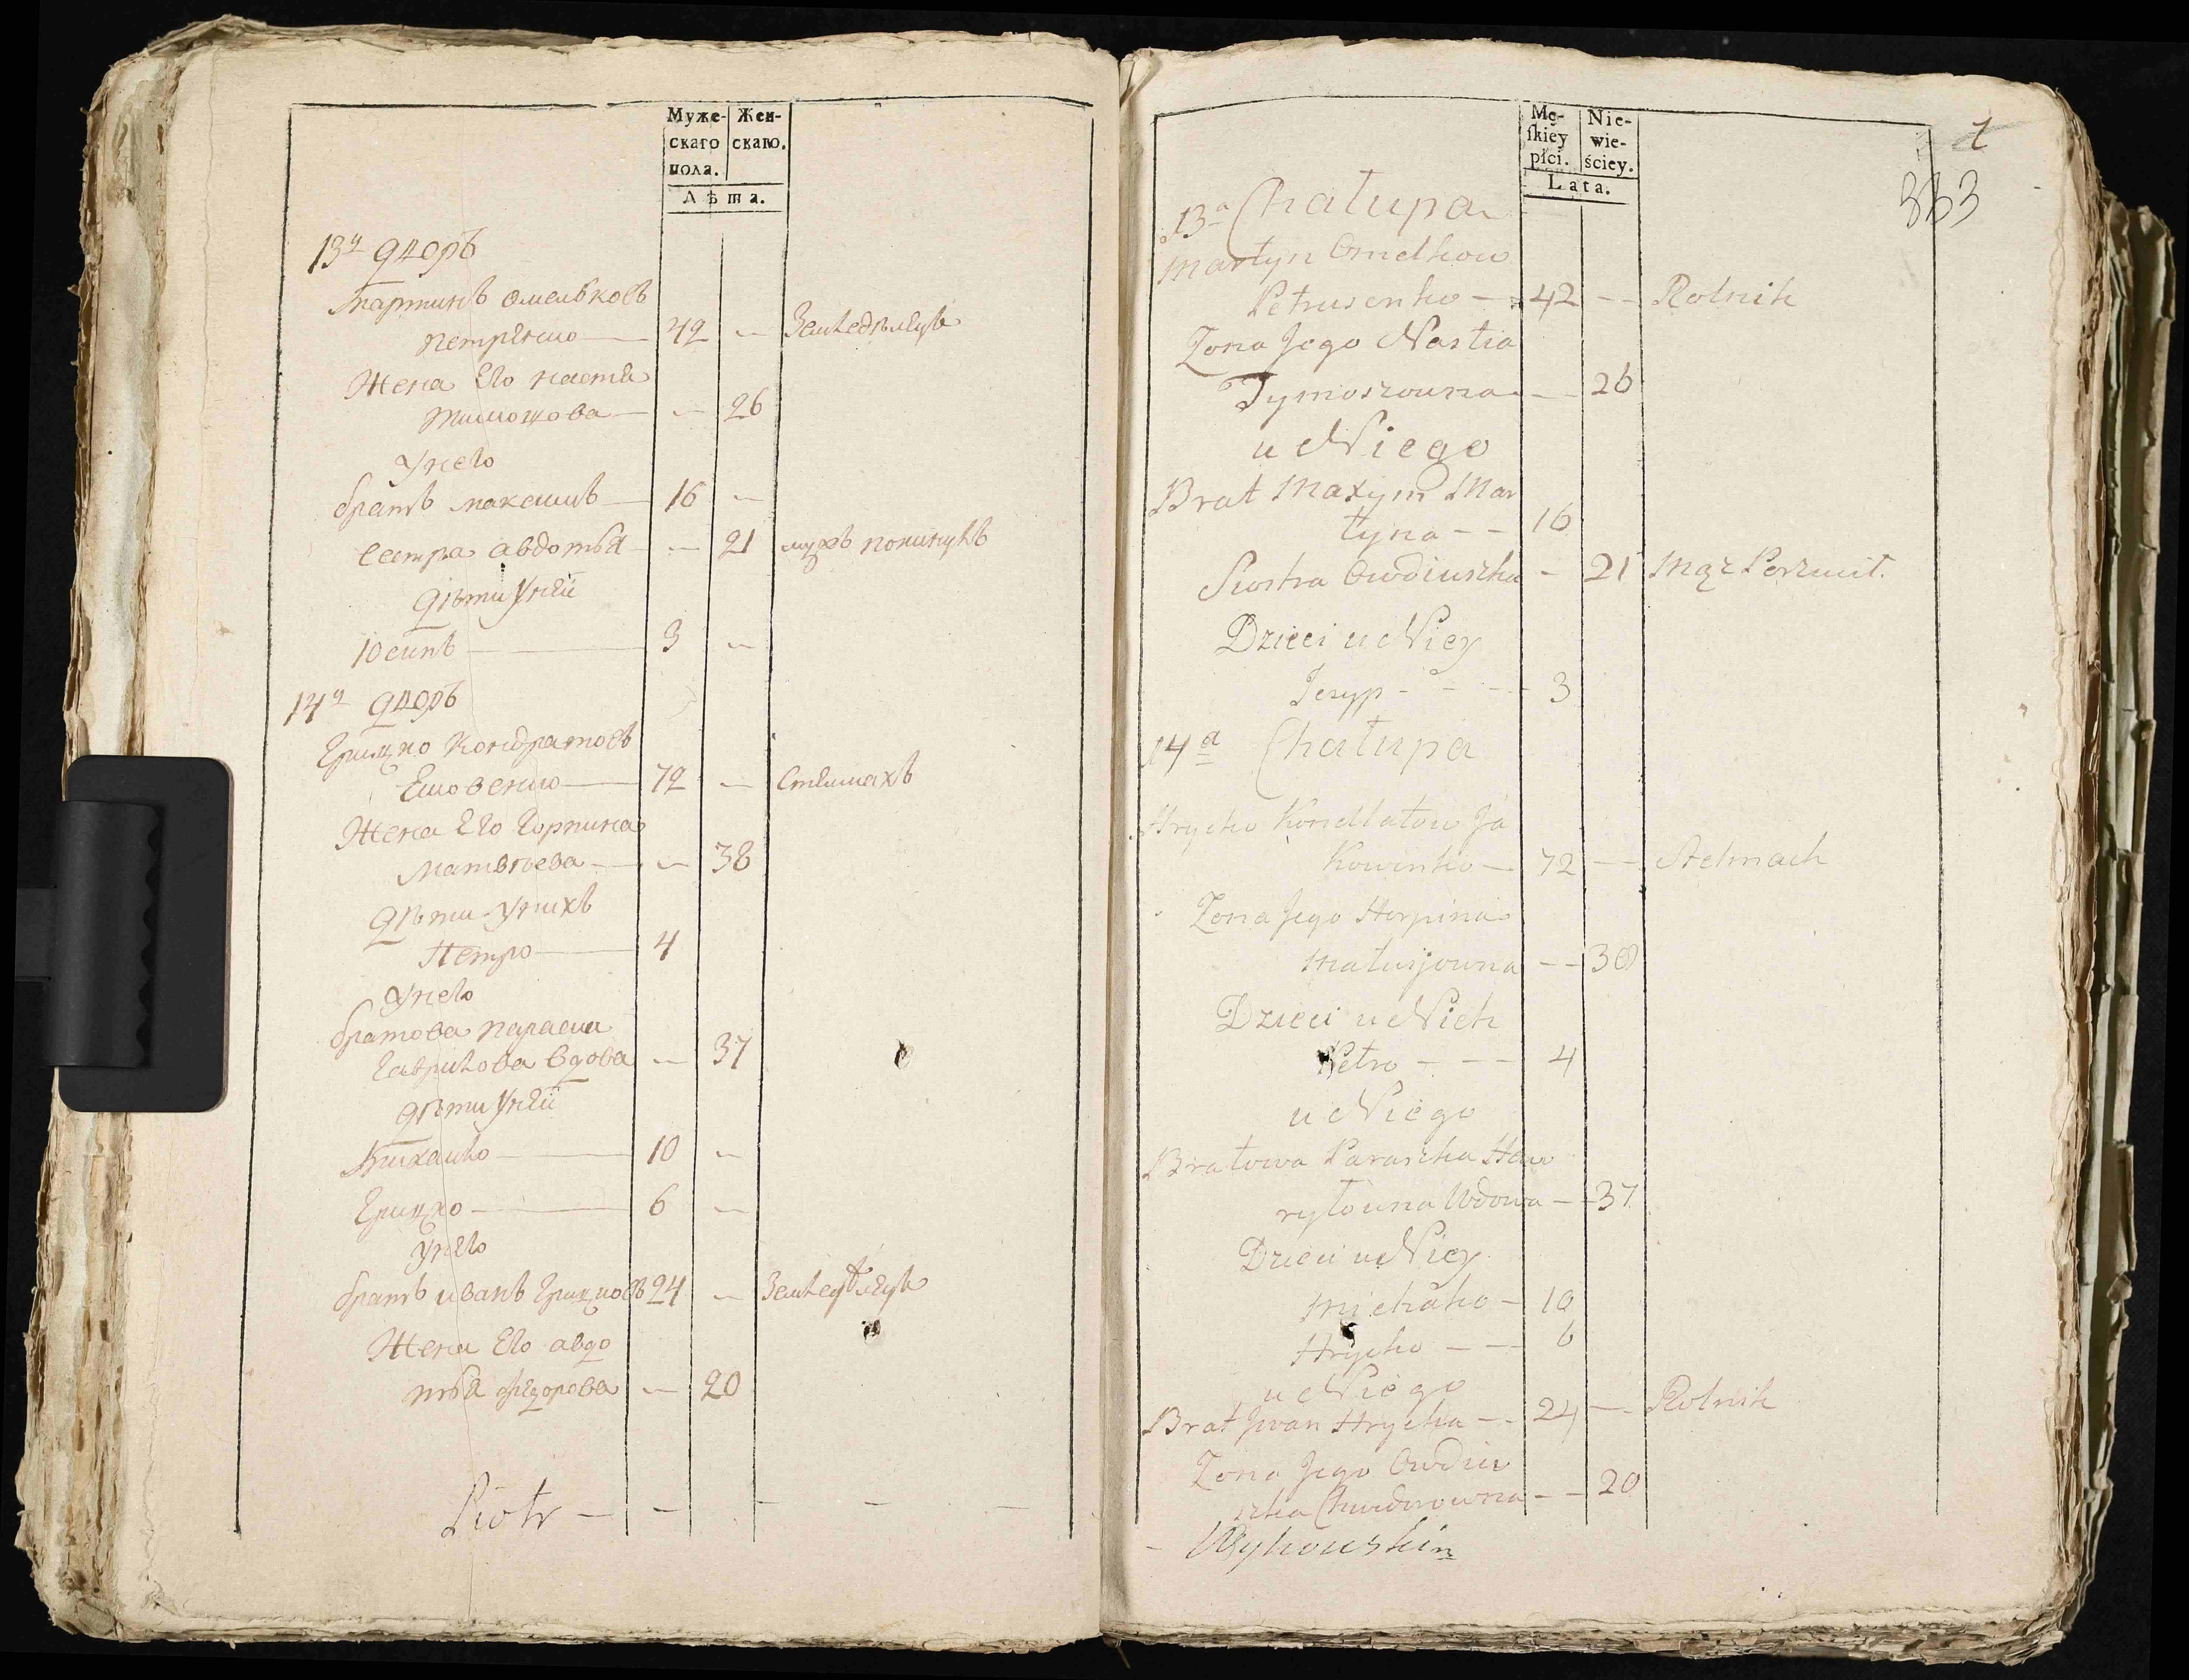 Муже-
скаго
пола.
Жен-
скаго.
Лѣта.
13й дворъ
Мартинъ омельковъ
петренко — 42 —
Земледѣлецъ
Жена Его настя
тимошкова — — 26
Унего
братъ максимъ — 16 —
Сестра авдотья — — 21 мужъ покинулъ
дѣти Унеи
Юсипъ — 3 —
14й дворъ
Грицко кондратовъ
72 — Стелмахъ
Жена Его Горпина
матвѣева — — 38
дѣти Унихъ
Петро — 4
Унего
братова параска
гаврилова вдова — 37
дѣти Унеи
Михайло — 10 —
Грицко — 6 —
Унего
братъ иванъ Грицковъ 24 — Земледѣлецъ
Жена Его авдо
тья федорова — 20
Piotr — — — — —
Mę-
ſkiey
płci.
Nie-
wie-
ściey.
Lata.
1
333
13a Chałupa
Martyn Omelkow
Petrusenko — 42 — Rolnik
Zona Jego Nastia
Tymoszowna — — 26
u Niego
Brat Maxym Mar
tyna — — 16
Siostra Owdiuszka — 21 Mąz Porzucił.
Dzieci u Niey
Jezyp - - - 3
14a Chałupa
Hrycko Kondratow Ja
kowenko — 72 — Stelmach
Zona Jego Horpina
Matwijowna — — 38
Dzieci u Nich
Petro — — — 4
u Niego
Bratowa Paraszka Haw
ryłowna Wdowa — 37
Dzieci u Niey
Michałko — 10
Hrycko — — 6
u Niego
Brat Jwan Hrycka — 24 — Rolnik
Zona Jego Owdiu
szka Chwedorowna — — 20
- Wyhowski m